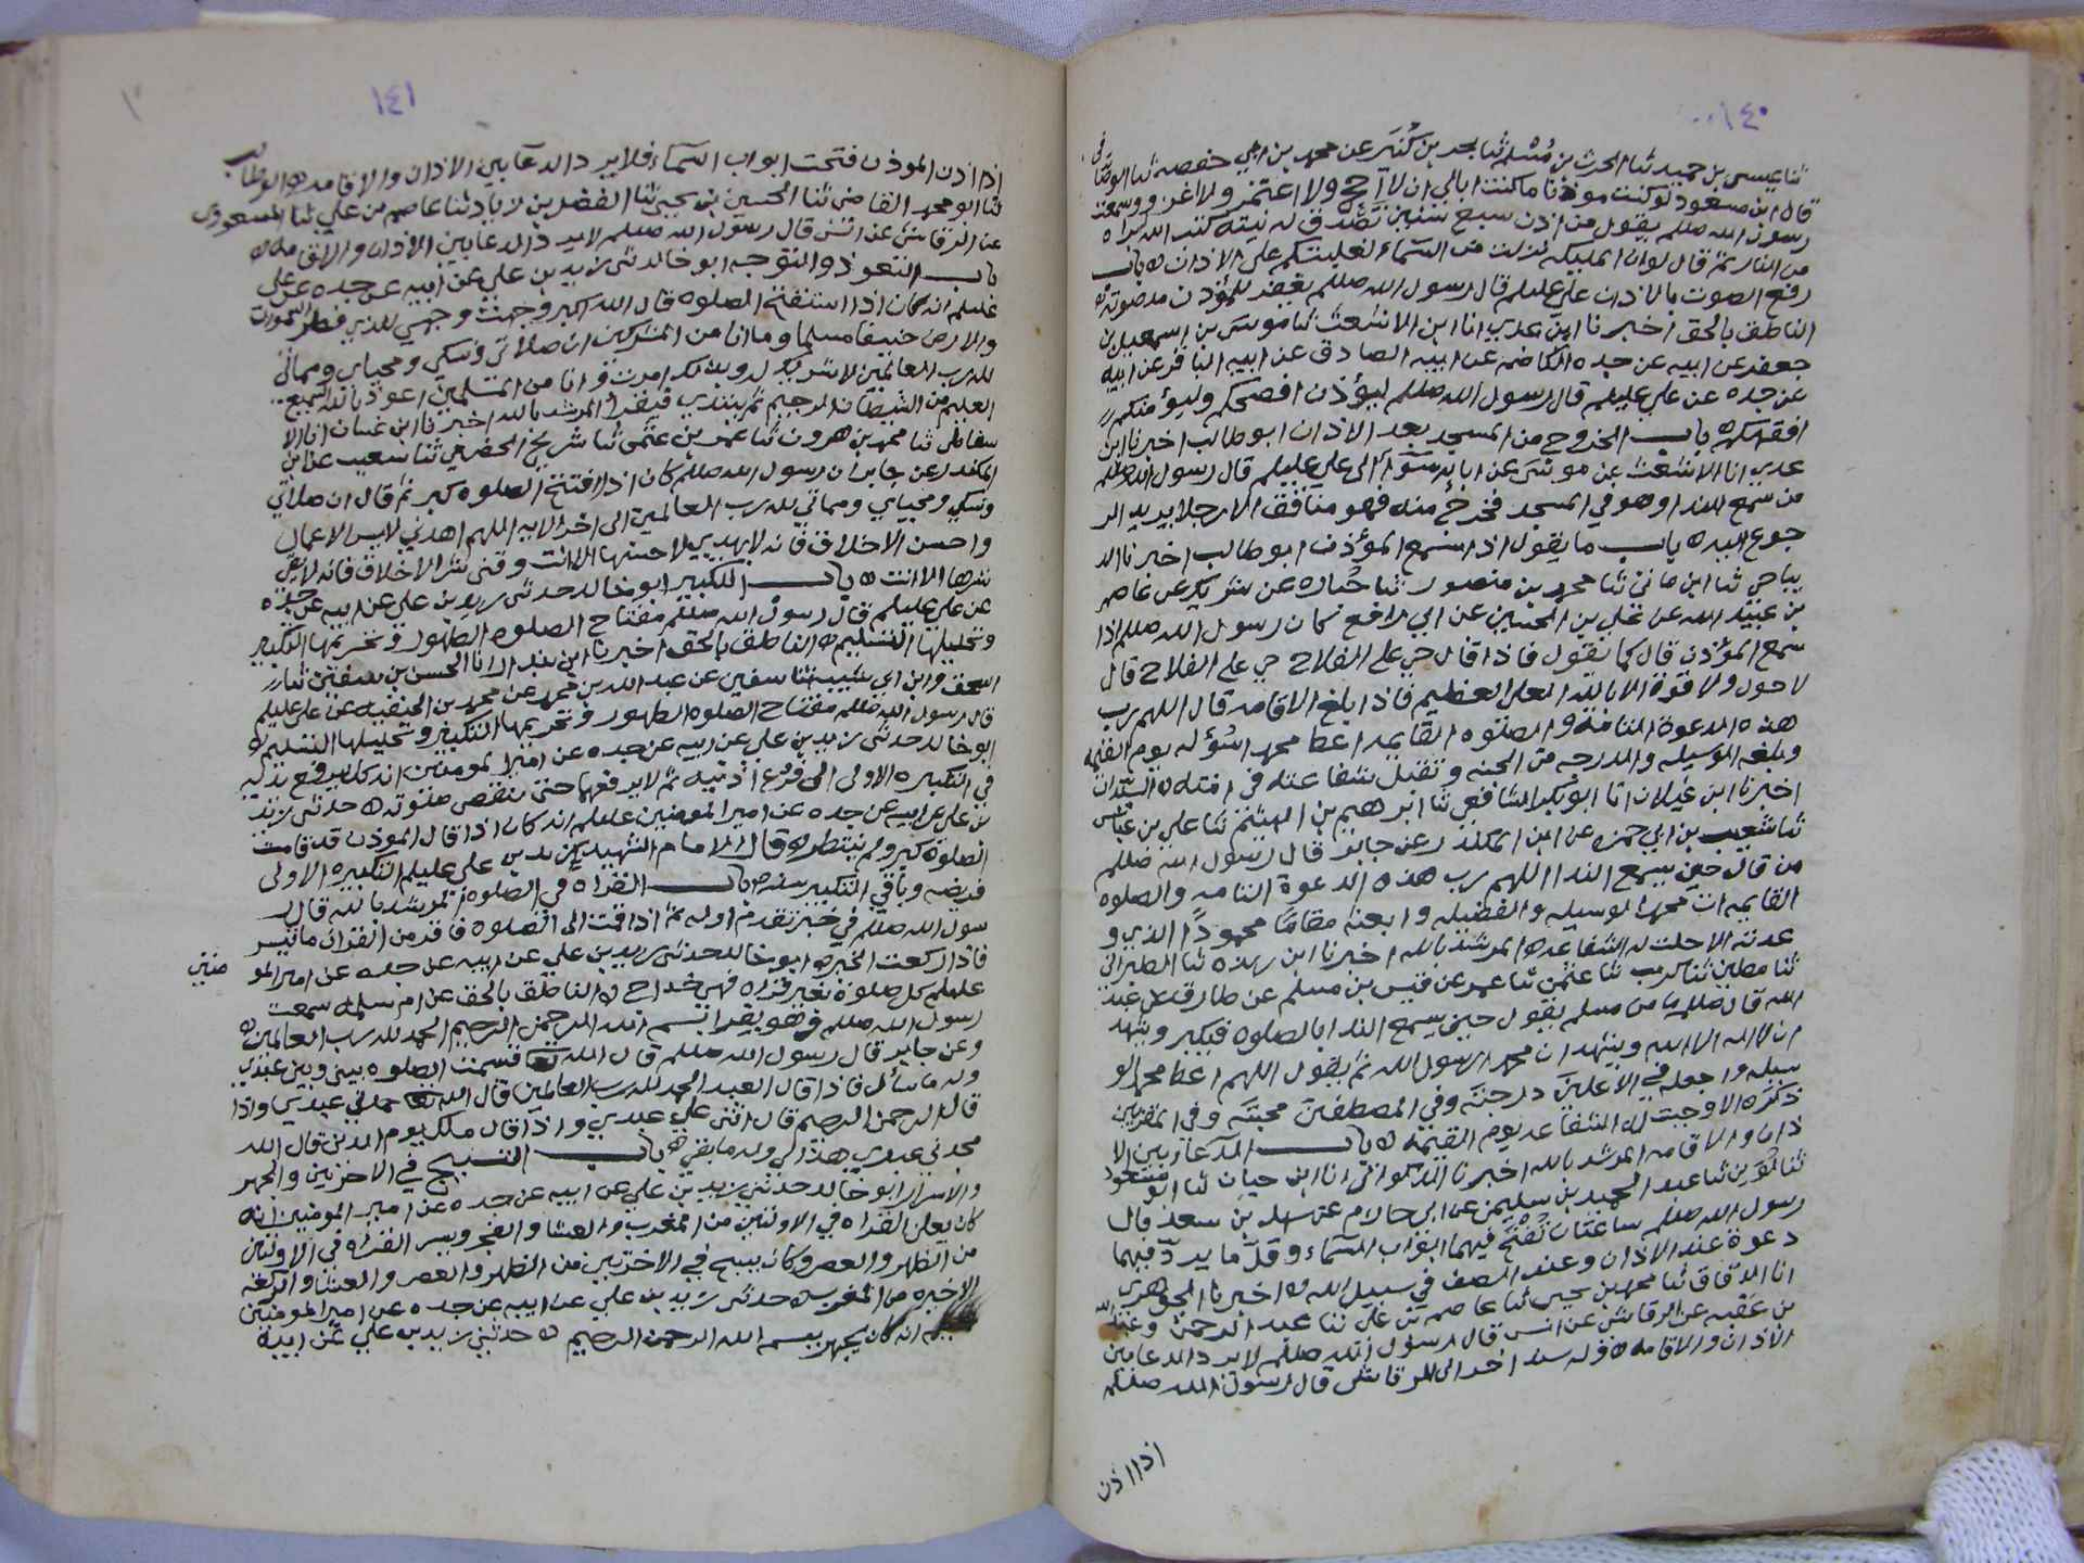 ١٤٠
ثنا عيسى بن حميد ثنا الحرث بن مسلم ثنا بحر بن كنيز عن محمد بن ابي حفصه ثنا
قال ابن مسعود لو كنت موذنا ما كنت ابالي ان لا احج ولا اعتمر ولا اغزو وسمعت
رسول الله صللم يقول من اذن سبع سنين تصدق له نيته كتب الله براه
من النار ثم قال لو ان المليكه نزلت من السماء لغلبتكم على الاذان ه باب
رفع الصوت بالاذان علي عليلم قال رسول الله صللم يغفر للمؤذن مد صوته ه
الناطق بالحق اخبرنا ابن عدي انا ابن الاشعث ثنا موسى بن اسمعيل بن
جعفر عن ابيه عن جده الكاضم عن ابيه الصادق عن ابيه الباقر عن ابيه
عن جده عن علي عليلم قال رسول الله صللم ليؤذن افصحكم وليؤمكم
افقهكم ه باب الخروج من المسجد بعد الاذان ابو طالب اخبرنا ابن
عدي انا الاشعث عن موسى عن ابايه الى علي عليلم قال رسول الله صللم
من سمع الندا وهو في المسجد فخرج منه فهو منافق الا رجلا يريد الر
جوع اليه ه باب ما يقول اذا سمع المؤذن ابو طالب اخبرنا الد
يباجي ثنا ابن ماتي ثنا محمد بن منصور ثنا جباره عن شريك عن عاصم
بن عبيد الله عن علي بن الحسين عن ابي رافع كان رسول الله صللم اذا
سمع المؤذن قال كما يقول فاذا قال حي على الفلاح حي على الفلاح قال
لا حول ولا قوة الا بالله العلي العظيم فاذا بلغ الاقامه قال اللهم رب
هذه الدعوة التامة والصلوه القايمه اعط محمدا سؤله يوم القيمه
وبلغه الوسيله والدرجه من الجنه وتقبل شفاعته في امته ه
اخبرنا ابن غيلان انا ابو بكر الشافعي ثنا ابرهيم بن الهيثم ثنا علي بن عياش
ثنا شعيب بن ابي حمزه عن ابن المكندر عن جابر قال رسول الله صللم
من قال حين يسمع الندا اللهم رب هذه الدعوة التامه والصلوه
القايمه ات محمدا الوسيله والفضيله وابعثه مقاما محمودا الذي و
عدته الا حلت له الشفاعه ه المرشد بالله اخبرنا ابن ريذه ثنا الطبراني
ثنا مطين ثنا ابو كريب ثنا عثمن ثنا عمر عن قيس بن مسلم عن طارق عن عبد
الله قال صللم ما من مسلم يقول حين يسمع الندا بالصلوه فيكبر ويشهد
ان لا اله الا الله ويشهد ان محمدا رسول الله ثم يقول اللهم اعط محمدا الو
سيله واجعله في الاعلين درجته وفي المصطفين محبته وفي المقربين
ذكره الا وجبت له الشفاعه يوم القيمه ه باب الدعا بين الا
ذان والاقامه المرشد بالله اخبرنا الذكواني انا ابن حيان ثنا ابو مسعود
ثنا لوين ثنا عبد الحميد بن سليمن عن ابي حازم عن سهل بن سعد قال
رسول الله صللم ساعتان تفتح فيهما ابواب السماء وقل ما يرد فيهما
دعوة عند الاذان وعند الصف في سبيل الله ه اخبرنا الجوهري
انا الدقاق ثنا محمد بن يحيى ثنا عاصم بن علي ثنا عبد الرحمن
بن عقبه عن الرقاشي عن انس قال رسول الله صللم لا يرد الدعا بين
الاذان والاقامه ه وله سند اخر الى الرقاشي قال رسول الله صللم
اذا اذن
١٤١
اذا اذن الموذن فتحت ابواب السماء فلا يرد الدعا بين الاذان والاقامه ه ابو طالب
ثنا ابو محمد القاضي ثنا الحسين بن يحيى ثنا الفضل بن زياد ثنا عاصم بن علي ثنا المسعودي
عن الرقاشي عن انس قال رسول الله صللم لا يرد الدعا بين الاذان والاقامه ه
باب التعوذ والتوجه ابو خالد ثنى زيد بن علي عن ابيه عن جده عن علي
عليلم انه كان اذا استفتح الصلوه قال الله اكبر وجهت وجهي للذي فطر السموات
والارض حنيفا مسلما وما انا من المشركين ان صلاتي ونسكي ومحياي ومماتي
لله رب العالمين لا شريك له وبذلك امرت وانا من المسلمين اعوذ بالله السميع
العليم من الشيطان الرجيم ثم يبتدي فيقرا المرشد بالله اخبرنا ابن غسان انا الا
سفاطي ثنا محمد بن هرون ثنا عمر بن عثمن ثنا شريح الحضرمي ثنا شعيب عن ابن
المكندر عن جابر ان رسول الله صللم كان اذا افتتح الصلوه كبر ثم قال ان صلاتي
ونسكي ومحياي ومماتي لله رب العالمين الى اخر الايه اللهم اهدني لاحسن الاعمال
واحسن الاخلاق فانه لا يهدي لاحسنها الا انت وقني شر الاخلاق فانه لا يقي
شرها الا انت ه باب التكبير ابو خالد حدثنى زيد بن علي عن ابيه عن جده
عن علي عليلم قال رسول الله صللم مفتاح الصلوه الطهور وتحريمها التكبير
وتحليلها التسليم ه الناطق بالحق اخبرنا ابن بندار انا الحسن بن سفين ثنا
اسحق وابن ابي شيبه ثنا سفين عن عبد الله بن محمد عن محمد بن الحنفيه عن علي عليلم
قال رسول الله صللم مفتاح الصلوه الطهور وتحريمها التكبير وتحليلها التسليم ه
ابو خالد حدثنى زيد بن علي عن ابيه عن جده عن امير المومنين انه كان يرفع يديه
في التكبيره الاولى الى فروع اذنيه ثم لا يرفعهما حتى يقضي صلوته ه حدثنى زيد
بن علي عن ابيه عن جده عن امير المومنين عليلم انه كان اذا قال الموذن قد قامت
الصلوة كبر ولم ينتظر ه قال الامام الشهيد زيد بن علي عليلم التكبيره الاولى
فريضه وباقي التكبير سنه ه باب القراه في الصلوه المرشد بالله قال ر
سول الله صللم في خبر تقدم اوله ثم اذا قمت الى الصلوه فاقر من القران ما تيسر
فاذا ركعت الخبر ه ابو خالد حدثنى زيد بن علي عن ابيه عن جده عن امير المو منين
عليلم كل صلوة بغير قراه فهي خداج ه الناطق بالحق عن ام سلمه سمعت
رسول الله صللم وهو يقرا بسم الله الرحمن الرحيم الحمد لله رب العالمين ه
وعن جابر قال رسول الله صللم قال الله تعا قسمت الصلوه بيني وبين عبدي
وله ما سأل فاذا قال العبد الحمد لله رب العالمين قال الله تعا حمدني عبدي واذا
قال الرحمن الرحيم قال اثنى علي عبدي واذا قال ملك يوم الدين قال الله
مجدني عبدي هذا لي وله ما بقي ه باب التسبيح في الاخرتين والجهر
والاسرار ابو خالد حدثني زيد بن علي عن ابيه عن جده عن امير المومنين انه
كان يعلن القراه في الاولتين من المغرب والعشا والفجر ويسر القراه في الاولتين
من الظهر والعصر وكان يسبح في الاخرتين من الظهر والعصر والعشا والركعه
الاخيره من المغرب ه حدثنى زيد بن علي عن ابيه عن جده عن امير المومنين
انه كان يجهر ببسم الله الرحمن الرحيم ه حدثني زيد بن علي عن ابيه